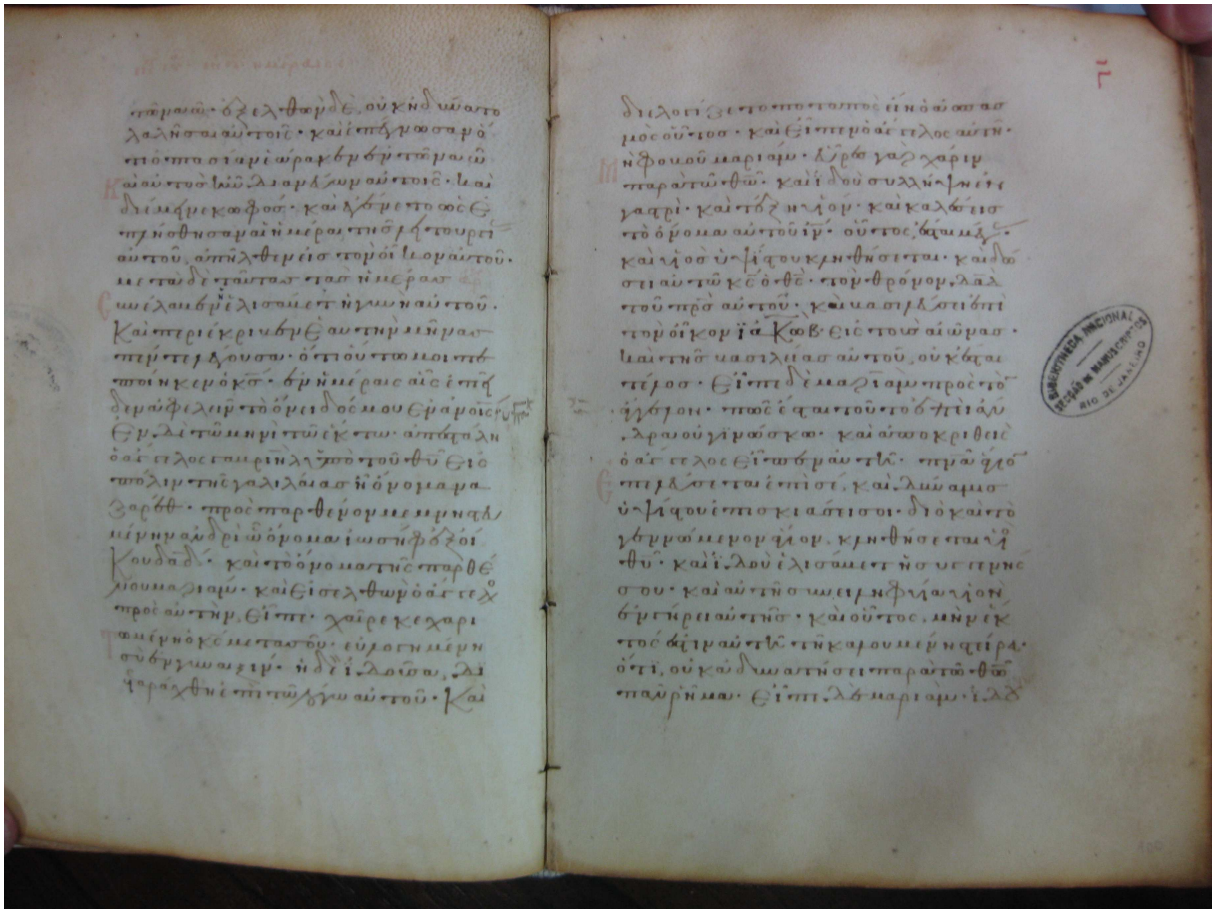 τῷ ναῷ· ἐξελθὼν δὲ, οὐκ ἠδύνατο
λαλῆσαι αὐτοῖς· καὶ ἐπέγνωσαν ὅ
τι ὀπτασίαν ἑώρακεν ἐν τῷ ναῷ
Καὶ αὐτὸς ἦν διανεύων αὐτοῖς· καὶ
διέμενε κωφός· καὶ ἐγένετο ὡς ἐ
πλήσθησαν αἱ ἡμέραι τῆς λειτουργί
αὐτοῦ, ἀπῆλθεν εἰς τὸν οἶκον αὐτοῦ·
μετὰ δὲ ταύτας τὰς ἡμέρας
συνέλαβεν ἐλισάβετ ἡ γυνὴ αὐτοῦ·
Καὶ περιέκρυβεν ἑαυτὴν μῆνας
πέντε λέγουσα· ὅτι οὕτω μοι πε
ποίηκεν ὁ κς· ἐν ἡμέραις αἷς ἐπεῖ
δεν ἀφελεῖν τὸ ὄνειδός μου ἐν ἀνοις·
Ἐν δὲ τῷ μηνὶ τῷ ἕκτω· ἀπεστάλη
ὁ ἄγγελος γαβριὴλ ὑπὸ τοῦ θυ εἰς
πόλιν τῆς γαλιλαίας ᾗ ὄνομα να
ζαρέθ· πρὸς παρθένον μεμνηστευ
μένην ἀνδρὶ ᾧ ὄνομα ἰωσὴφ ἐξ οἴ
κου δαδ· καὶ τὸ ὄνομα τῆς παρθέ
νου μαριάμ· καὶ εἰσελθὼν ὁ ἄγγελος
πρὸς αὐτὴν, εἶπε· χαῖρε κεχαρι
τωμένη ὁ κς μετὰ σοῦ· εὐλογημένη
σὺ ἐν γυναιξίν· ἡ δὲ ἰδοῦσα, δι
εταράχθη ἐπὶ τῷ λόγω αὐτοῦ· Καὶ
διελογίζετο ποταπὸς εἴη ὁ ἀσπασ
μὸς οὗτος· καὶ εἶπεν ὁ ἄγγελος αὐτῇ·
Μὴ φοβοῦ μαριάμ· εὗρες γὰρ χάριν
παρὰ τῷ θῷ· καὶ ἰδοὺ συλλήψη ἐν
γαστρὶ· καὶ τέξη υἱόν· καὶ καλέσεις
τὸ ὄνομα αὐτοῦ ιν· οὗτος ἔσται μέγας·
καὶ υἱὸς ὑψίστου κληθήσεται· καὶ δώ
σει αὐτῷ κς ὁ θς· τὸν θρόνον δαδ
τοῦ πρς αὐτοῦ· καὶ βασιλεύσει ἐπὶ
τὸν οἶκον ἰακὼβ· εἰς τοὺς αἰῶνας·
καὶ τῆς βασιλείας αὐτοῦ, οὐκ ἔσται
τέλος· Εἶπε δὲ μαριὰμ πρὸς τὸ
ἄγγελον· πῶς ἔσται τοῦτο ἐπεὶ ἄν
δρα οὐ γινώσκω· καὶ ἀποκριθεὶς
ὁ ἄγγελος εἶπεν αὐτῇ· πνα ἅγιο
ἐπελεύσεται ἐπὶ σὲ, καὶ δύναμις
ὑψίστου ἐπισκιάσει σοι· διὸ καὶ τὸ
γεννώμενον ἅγιον, κληθήσεται υἱὸς
θυ· καὶ ἰδοὺ ἐλισάβετ ἡ συγγενής
σου· καὶ αὐτὴ συνειληφυῖα υἱὸν
ἐν γήρει αὐτῆς· καὶ οὗτος, μὴν ἕκ
τός ἐστιν αὐτῇ τῇ καλουμένη στείρα·
ὅτι, οὐκ ἀδυνατήσει παρὰ τῷ θῷ
πᾶν ῥῆμα· Εἶπε δὲ μαριάμ· ἰδοὺ
BIBLIOTHECA NACIONAL
SECÇÃO DE MANUSCRIPTOS
RIO DE JANEIRO
100